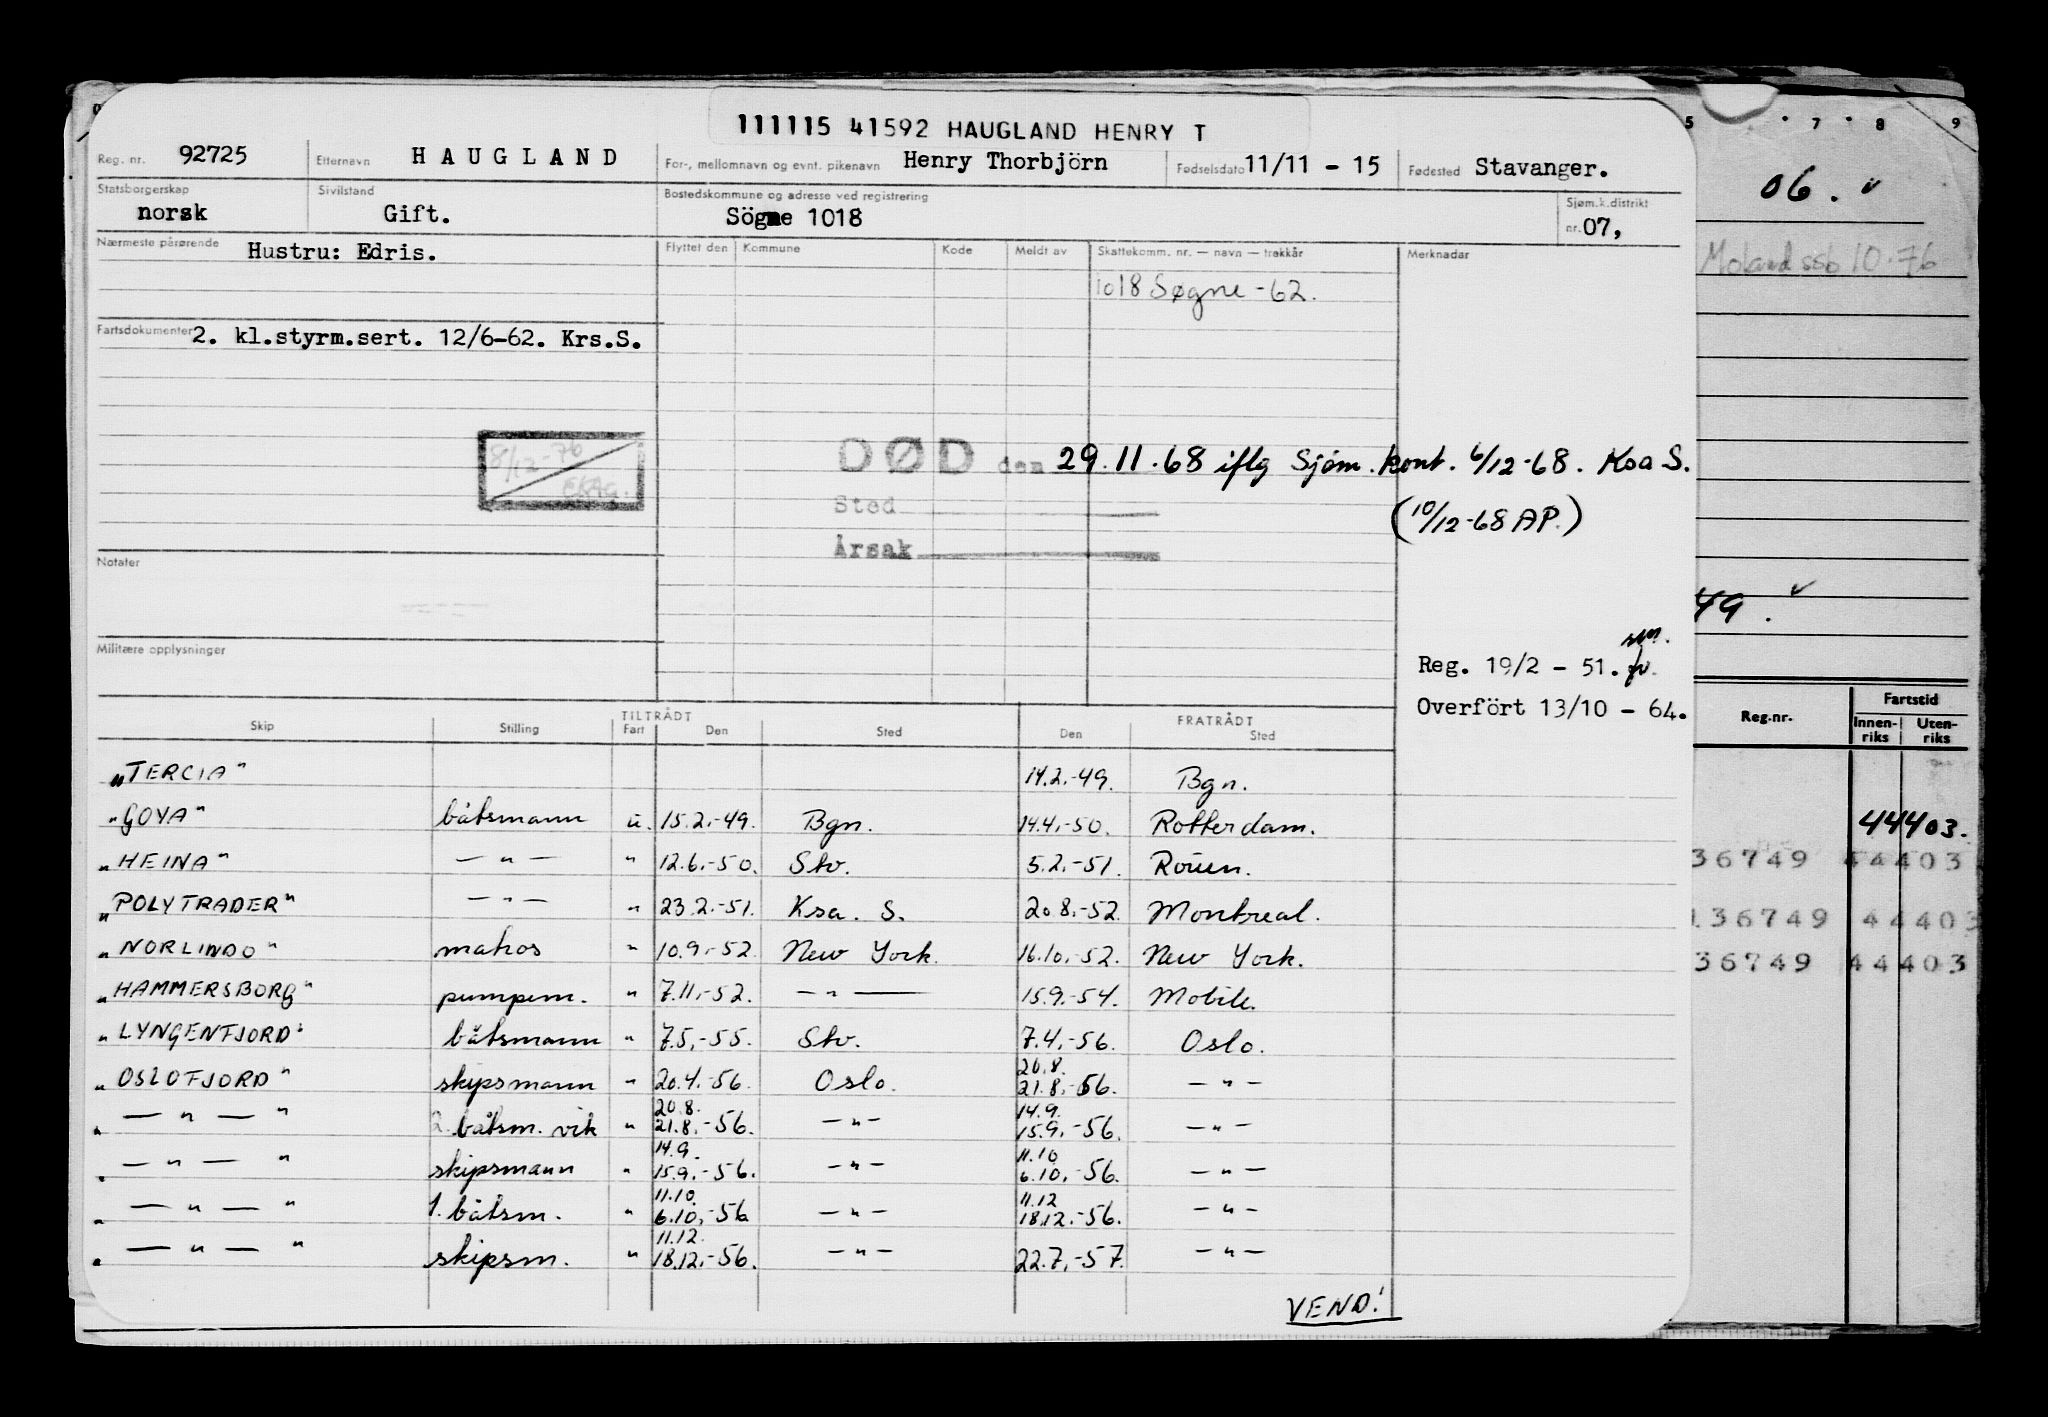 111115 41592 HAUGLAND HENRY T
Reg. nr. 92725 Etternavn HAUGLAND For-, mellomnavn og evnt. pikenavn Henry Thorbjörn Fødselsdato 11/11 - 15 Fødested Stavanger.
Statsborgerskap norsk Sivilstand Gift. Bostedskommune og adresse ved registrering Sögne 1018 Sjøm.k.distrikt nr. 07,
Nærmeste pårørende Hustru: Edris. Flyttet den Kommune Kode Meldt av Skattekomm. nr. — navn — trekkår Merknader
1018 Søgne -62.
Fartsdokumenter 2. kl.styrm.sert. 12/6-62. Krs.S.
8/12-76
DØD den 29.11.68 iflg Sjøm. kont. 6/12-68. Ksa S.
Sted
(10/12-68 AP.)
Årsak
Notater
Militære opplysninger
Reg. 19/2 - 51.
Overfört 13/10 - 64.
TILTRÅDT FRATRÅDT
Skip Stilling Fart Den Sted Den Sted
"TERCIA" 14.2.-49. Bgn.
"GOYA" båtsmann u. 15.2.-49. Bgn. 14.4.-50. Rotterdam.
"HEINA" — " — " 12.6.-50. Stv. 5.2.-51. Rouen.
"POLYTRADER" — " — " 23.2.-51. Ksa. S. 20.8.-52. Montreal.
"NORLINDO" matros " 10.9.-52. New York. 16.10.-52. New York.
"HAMMERSBORG" pumpem. " 7.11.-52. — " — 15.9.-54. Mobile.
"LYNGENFJORD" båtsmann " 7.5.-55. Stv. 7.4.-56. Oslo.
"OSLOFJORD" skipsmann " 20.4.-56. Oslo. 20.8. 21.8.-56. — " —
" — " — " 2. båtsm. vik " 20.8. 21.8.-56. — " — 14.9. 15.9.-56. — " —
" — " — " skipsmann " 14.9. 15.9.-56. — " — 11.10 6.10.-56. — " —
" — " — " 1. båtsm. " 11.10 6.10.-56 — " — 11.12 18.12.-56. — " —
" — " — " skipsm. " 11.12. 18.12.-56. — " — 22.7.-57. — " —
VEND!
5 7 8 9
06.
Moland ssb 10.76
49.
Reg.nr. Fartstid
Innen-riks Uten-riks
44403.
36749 44403
136749 44403
36749 44403